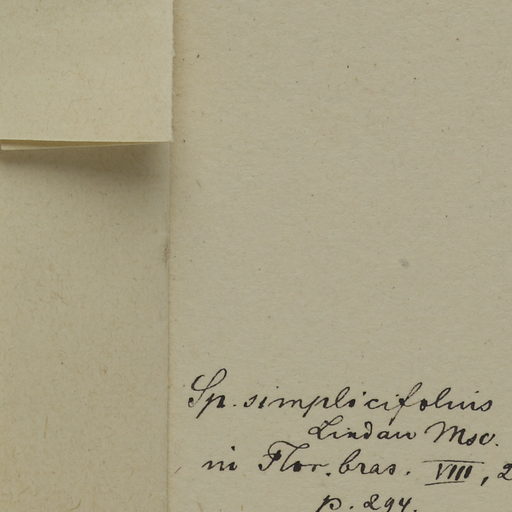 Sp. simplicifolius
Lindau Msc.
in Flor. bras. VIII, 2
p. 294.